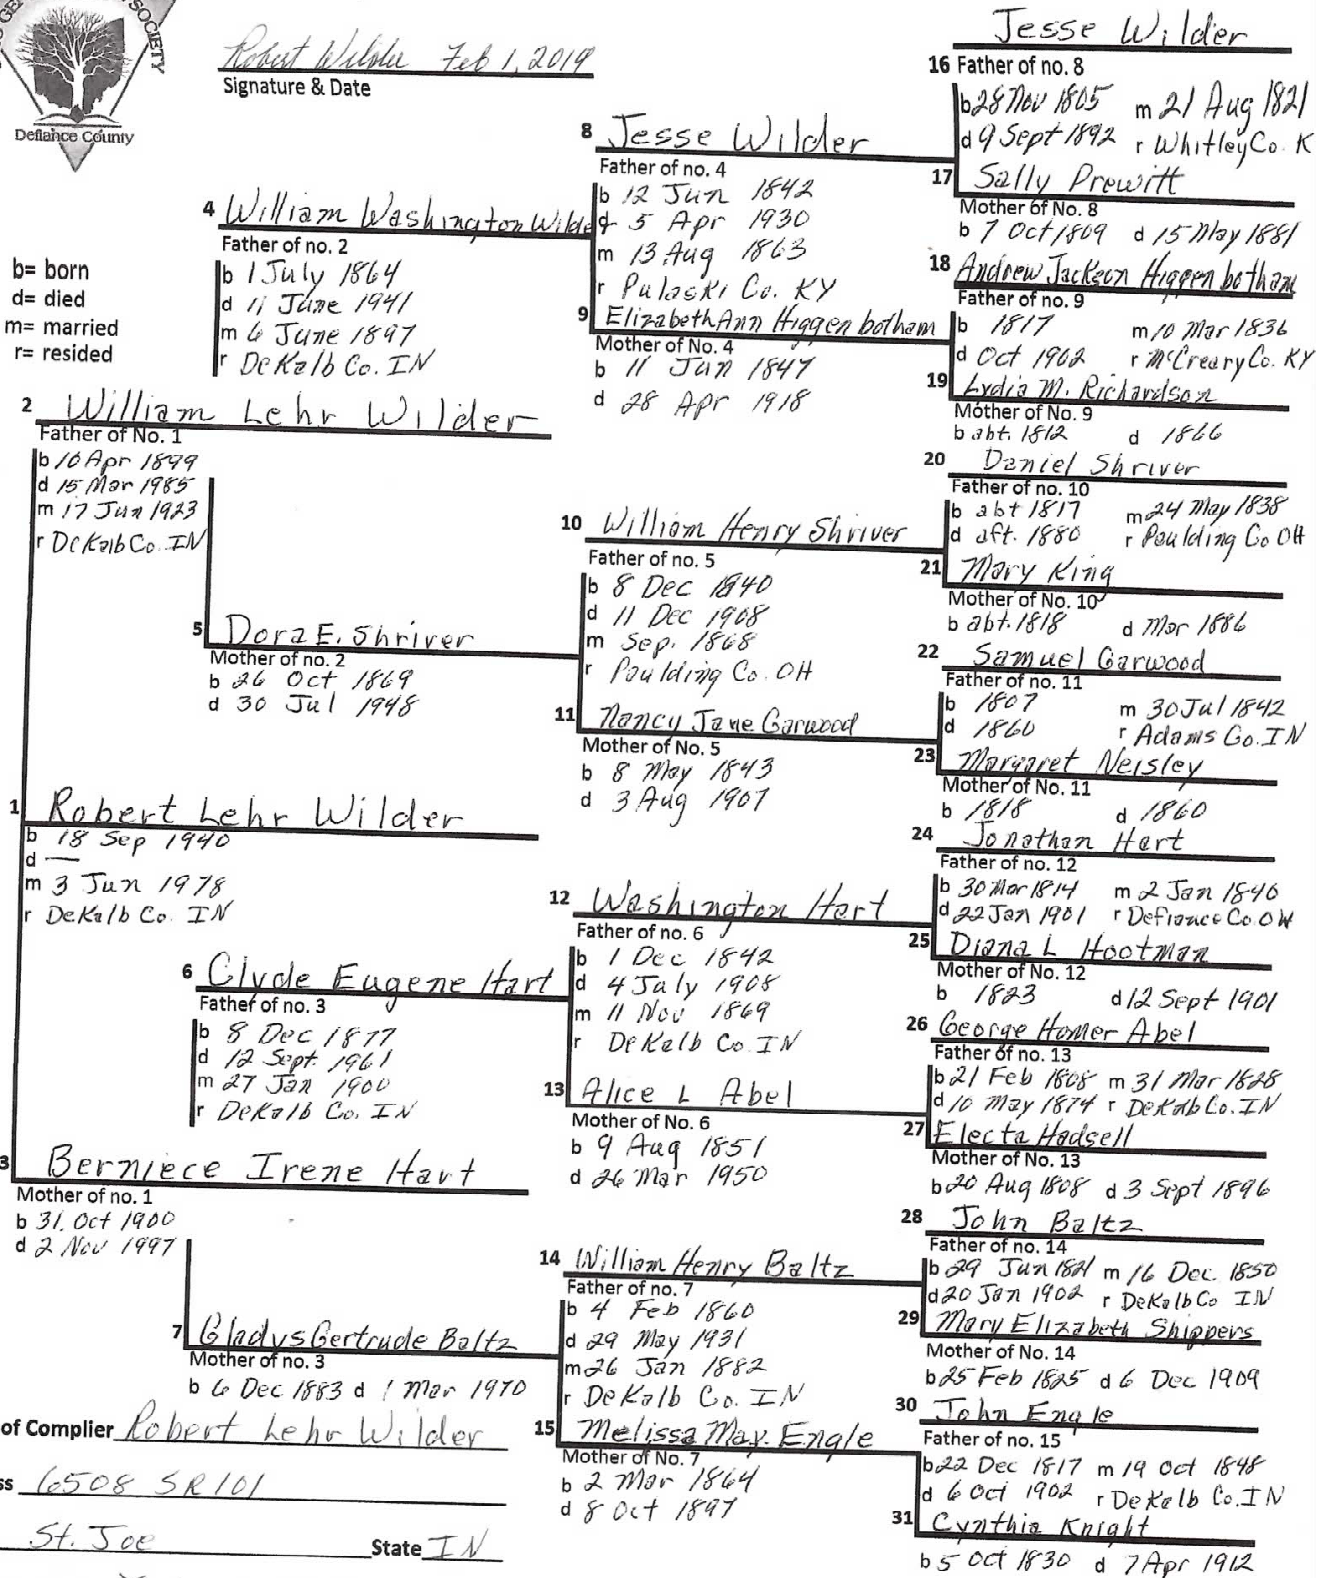 SOCIETY
Defiance County
Robert Wilder Feb 1, 2019
Signature & Date
b= born
d= died
m= married
r= resided
1 Robert Lehr Wilder
b 18 Sep 1940
d —
m 3 Jun 1978
r DeKalb Co. IN
2 William Lehr Wilder
Father of No. 1
b 10 Apr 1899
d 15 Mar 1985
m 17 Jun 1923
r DeKalb Co. IN
3 Berniece Irene Hart
Mother of no. 1
b 31. Oct 1900
d 2 Nov 1997
4 William Washington Wilder
Father of no. 2
b 1 July 1864
d 11 June 1941
m 6 June 1897
r DeKalb Co. IN
5 Dora E. Shriver
Mother of no. 2
b 26 Oct 1869
d 30 Jul 1948
6 Clyde Eugene Hart
Father of no. 3
b 8 Dec 1877
d 12 Sept. 1961
m 27 Jan 1900
r DeKalb Co. IN
7 Gladys Gertrude Baltz
Mother of no. 3
b 6 Dec 1883 d 1 Mar 1970
8 Jesse Wilder
Father of no. 4
b 12 Jun 1842
d 5 Apr 1930
m 13 Aug 1863
r Pulaski Co. KY
9 Elizabeth Ann Higgenbotham
Mother of No. 4
b 11 Jun 1847
d 28 Apr 1918
10 William Henry Shriver
Father of no. 5
b 8 Dec 1840
d 11 Dec 1908
m Sep. 1868
r Paulding Co. OH
11 Nancy Jane Garwood
Mother of No. 5
b 8 May 1843
d 3 Aug 1907
12 Washington Hart
Father of no. 6
b 1 Dec 1842
d 4 July 1908
m 11 Nov 1869
r DeKalb Co. IN
13 Alice L Abel
Mother of No. 6
b 9 Aug 1851
d 26 Mar 1950
14 William Henry Baltz
Father of no. 7
b 4 Feb 1860
d 29 May 1931
m 26 Jan 1882
r DeKalb Co. IN
15 Melissa May. Engle
Mother of No. 7
b 2 Mar 1864
d 8 Oct 1897
Jesse Wilder
16 Father of no. 8
b 28 Nov 1805 m 21 Aug 1821
d 9 Sept 1892 r Whitley Co. K
17 Sally Prewitt
Mother of No. 8
b 7 Oct 1809 d 15 May 1881
18 Andrew Jackson Higgenbotham
Father of no. 9
b 1817 m 10 Mar 1836
d Oct 1902 r McCreary Co. KY
19 Lydia M. Richardson
Mother of No. 9
b abt. 1812 d 1866
20 Daniel Shriver
Father of no. 10
b abt 1817 m 24 May 1838
d aft. 1880 r Paulding Co OH
21 Mary King
Mother of No. 10
b abt. 1818 d Mar 1886
22 Samuel Garwood
Father of no. 11
b 1807 m 30 Jul 1842
d 1860 r Adams Co. IN
23 Margaret Neisley
Mother of No. 11
b 1818 d 1860
24 Jonathan Hart
Father of no. 12
b 30 Mar 1814 m 2 Jan 1840
d 22 Jan 1901 r Defiance Co. OH
25 Diana L Hootman
Mother of No. 12
b 1823 d 12 Sept 1901
26 George Homer Abel
Father of no. 13
b 21 Feb 1808 m 31 Mar 1828
d 10 May 1874 r DeKalb Co. IN
27 Electa Hadsell
Mother of No. 13
b 20 Aug 1808 d 3 Sept 1896
28 John Baltz
Father of no. 14
b 29 Jun 1821 m 16 Dec. 1850
d 20 Jan 1902 r DeKalb Co IN
29 Mary Elizabeth Shippers
Mother of No. 14
b 25 Feb 1825 d 6 Dec 1909
30 John Engle
Father of no. 15
b 22 Dec 1817 m 19 Oct 1848
d 6 Oct 1902 r DeKalb Co. IN
31 Cynthia Knight
b 5 Oct 1830 d 7 Apr 1912
of Complier Robert Lehr Wilder
ss 6508 SR 101
St. Joe State IN